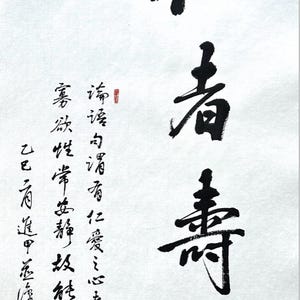 者壽
論語句謂有仁愛之心
寡欲性常安靜故能
乙巳二月進甲並